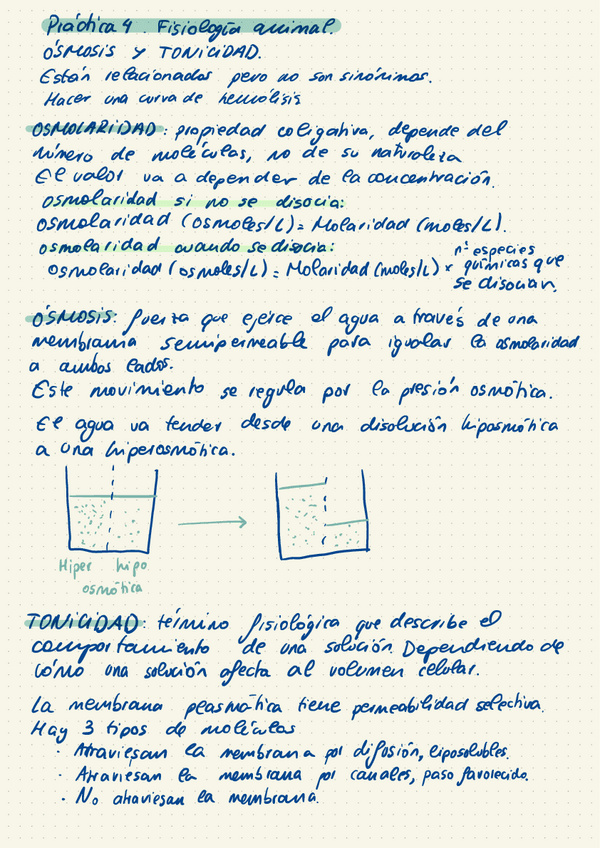 Práctica 4. Fisiología animal.
ÓSMOSIS Y TONICIDAD.
Están relacionados pero no son sinónimas.
Hacer una curva de hemólisis
OSMOLARIDAD: propiedad coligativa, depende del
número de moléculas, no de su naturaleza
El valor va a depender de la concentración.
osmolaridad si no se disocia:
osmolaridad (osmoles/L) = Molaridad (moles/L).
osmolaridad cuando se disocia:
osmolaridad (osmoles/L) = Molaridad (moles/L) × nº especies
químicas que
se disocian.
ÓSMOSIS: fuerza que ejerce el agua a través de una
membrana semipermeable para igualar la osmolaridad
a ambos lados.
Este movimiento se regula por la presión osmótica.
El agua va tender desde una disolución hiposmótica
a una hiperosmótica.
Hiper hipo
osmótica
TONICIDAD: término fisiológica que describe el
comportamiento de una solución. Dependiendo de
cómo una solución afecta al volumen celular.
La membrana plasmática tiene permeabilidad selectiva.
Hay 3 tipos de moléculas
· Atraviesan la membrana por difusión, liposolubles.
· Atraviesan la membrana por canales, paso favorecido.
· No atraviesan la membrana.